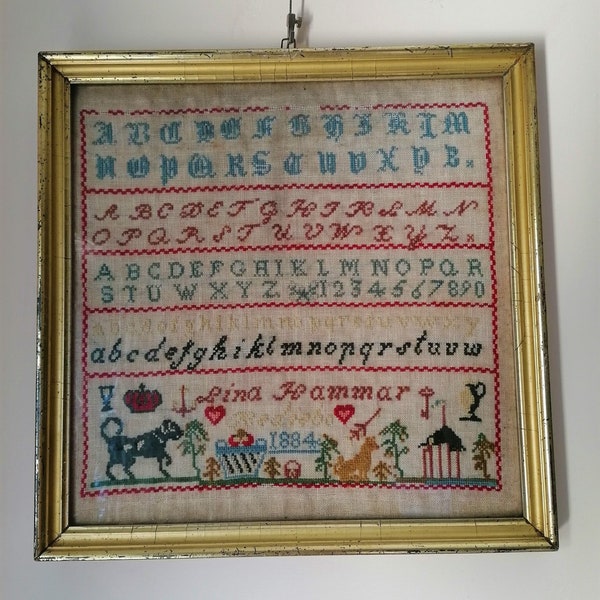 A B C D E F G H I K L M
N O P Q R S T U V X Y Z.
A B C D E F G H I K L M N
O P Q R S T U V W X Y Z.
A B C D E F G H I K L M N O P Q R
S T U W X Y Z 1 2 3 4 5 6 7 8 9 0
a b c d e f g h i k l m n o p q r s t u v w
Lina Hammar
1884